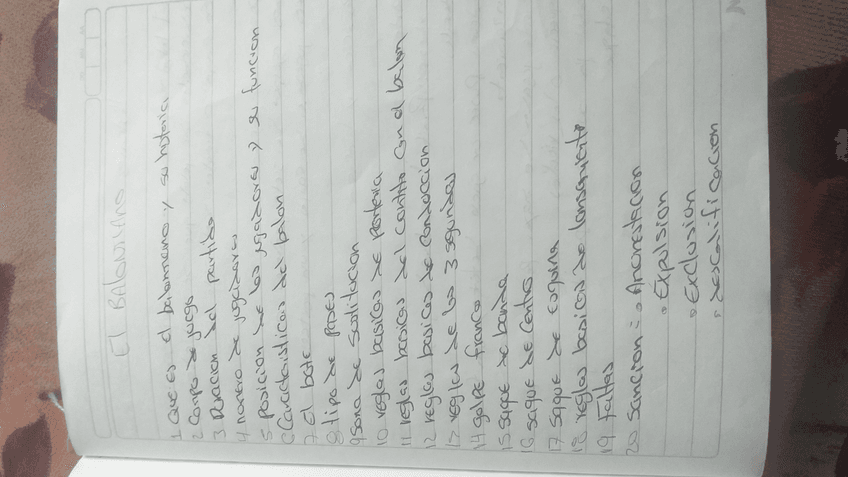 El BALONMANO
1 Que es el balonmano y su historia
2 Campo de juego
3 Duracion del partido
4 numero de jugadores
5 Posicion de los jugadores y su funcion
6 Caracteristicas del balon
7 El bote
8 tipo de pases
9 sona de sustitucion
10 reglas basicas de Porteria
11 reglas basicas del contato con el balon
12 reglas basicas de conduccion
13 reglas de los 3 segundos
14 golpe franco
15 saque de banda
16 saque de centro
17 saque de esquina
18 reglas basicas de lansamiento
19 Faltas
20 Sancion: • Amonestacion
• Expulsion
• Exclusion
• descalificacion